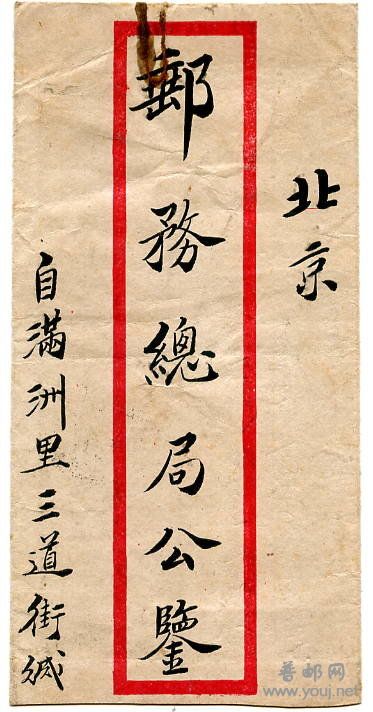 北京
郵務總局公鑒
自滿洲里三道街缄
普邮网
www.youj.net